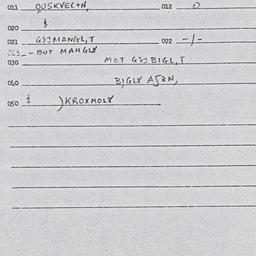 011 QUSKVEC+N, 012 O
020 $
021 GSIMANGL,T 022 -/-
023 -- BUT MANGLY
030 MOT GSIBIGL,T
040 BIGLY AJEN,
050 $ )KROXMOLY